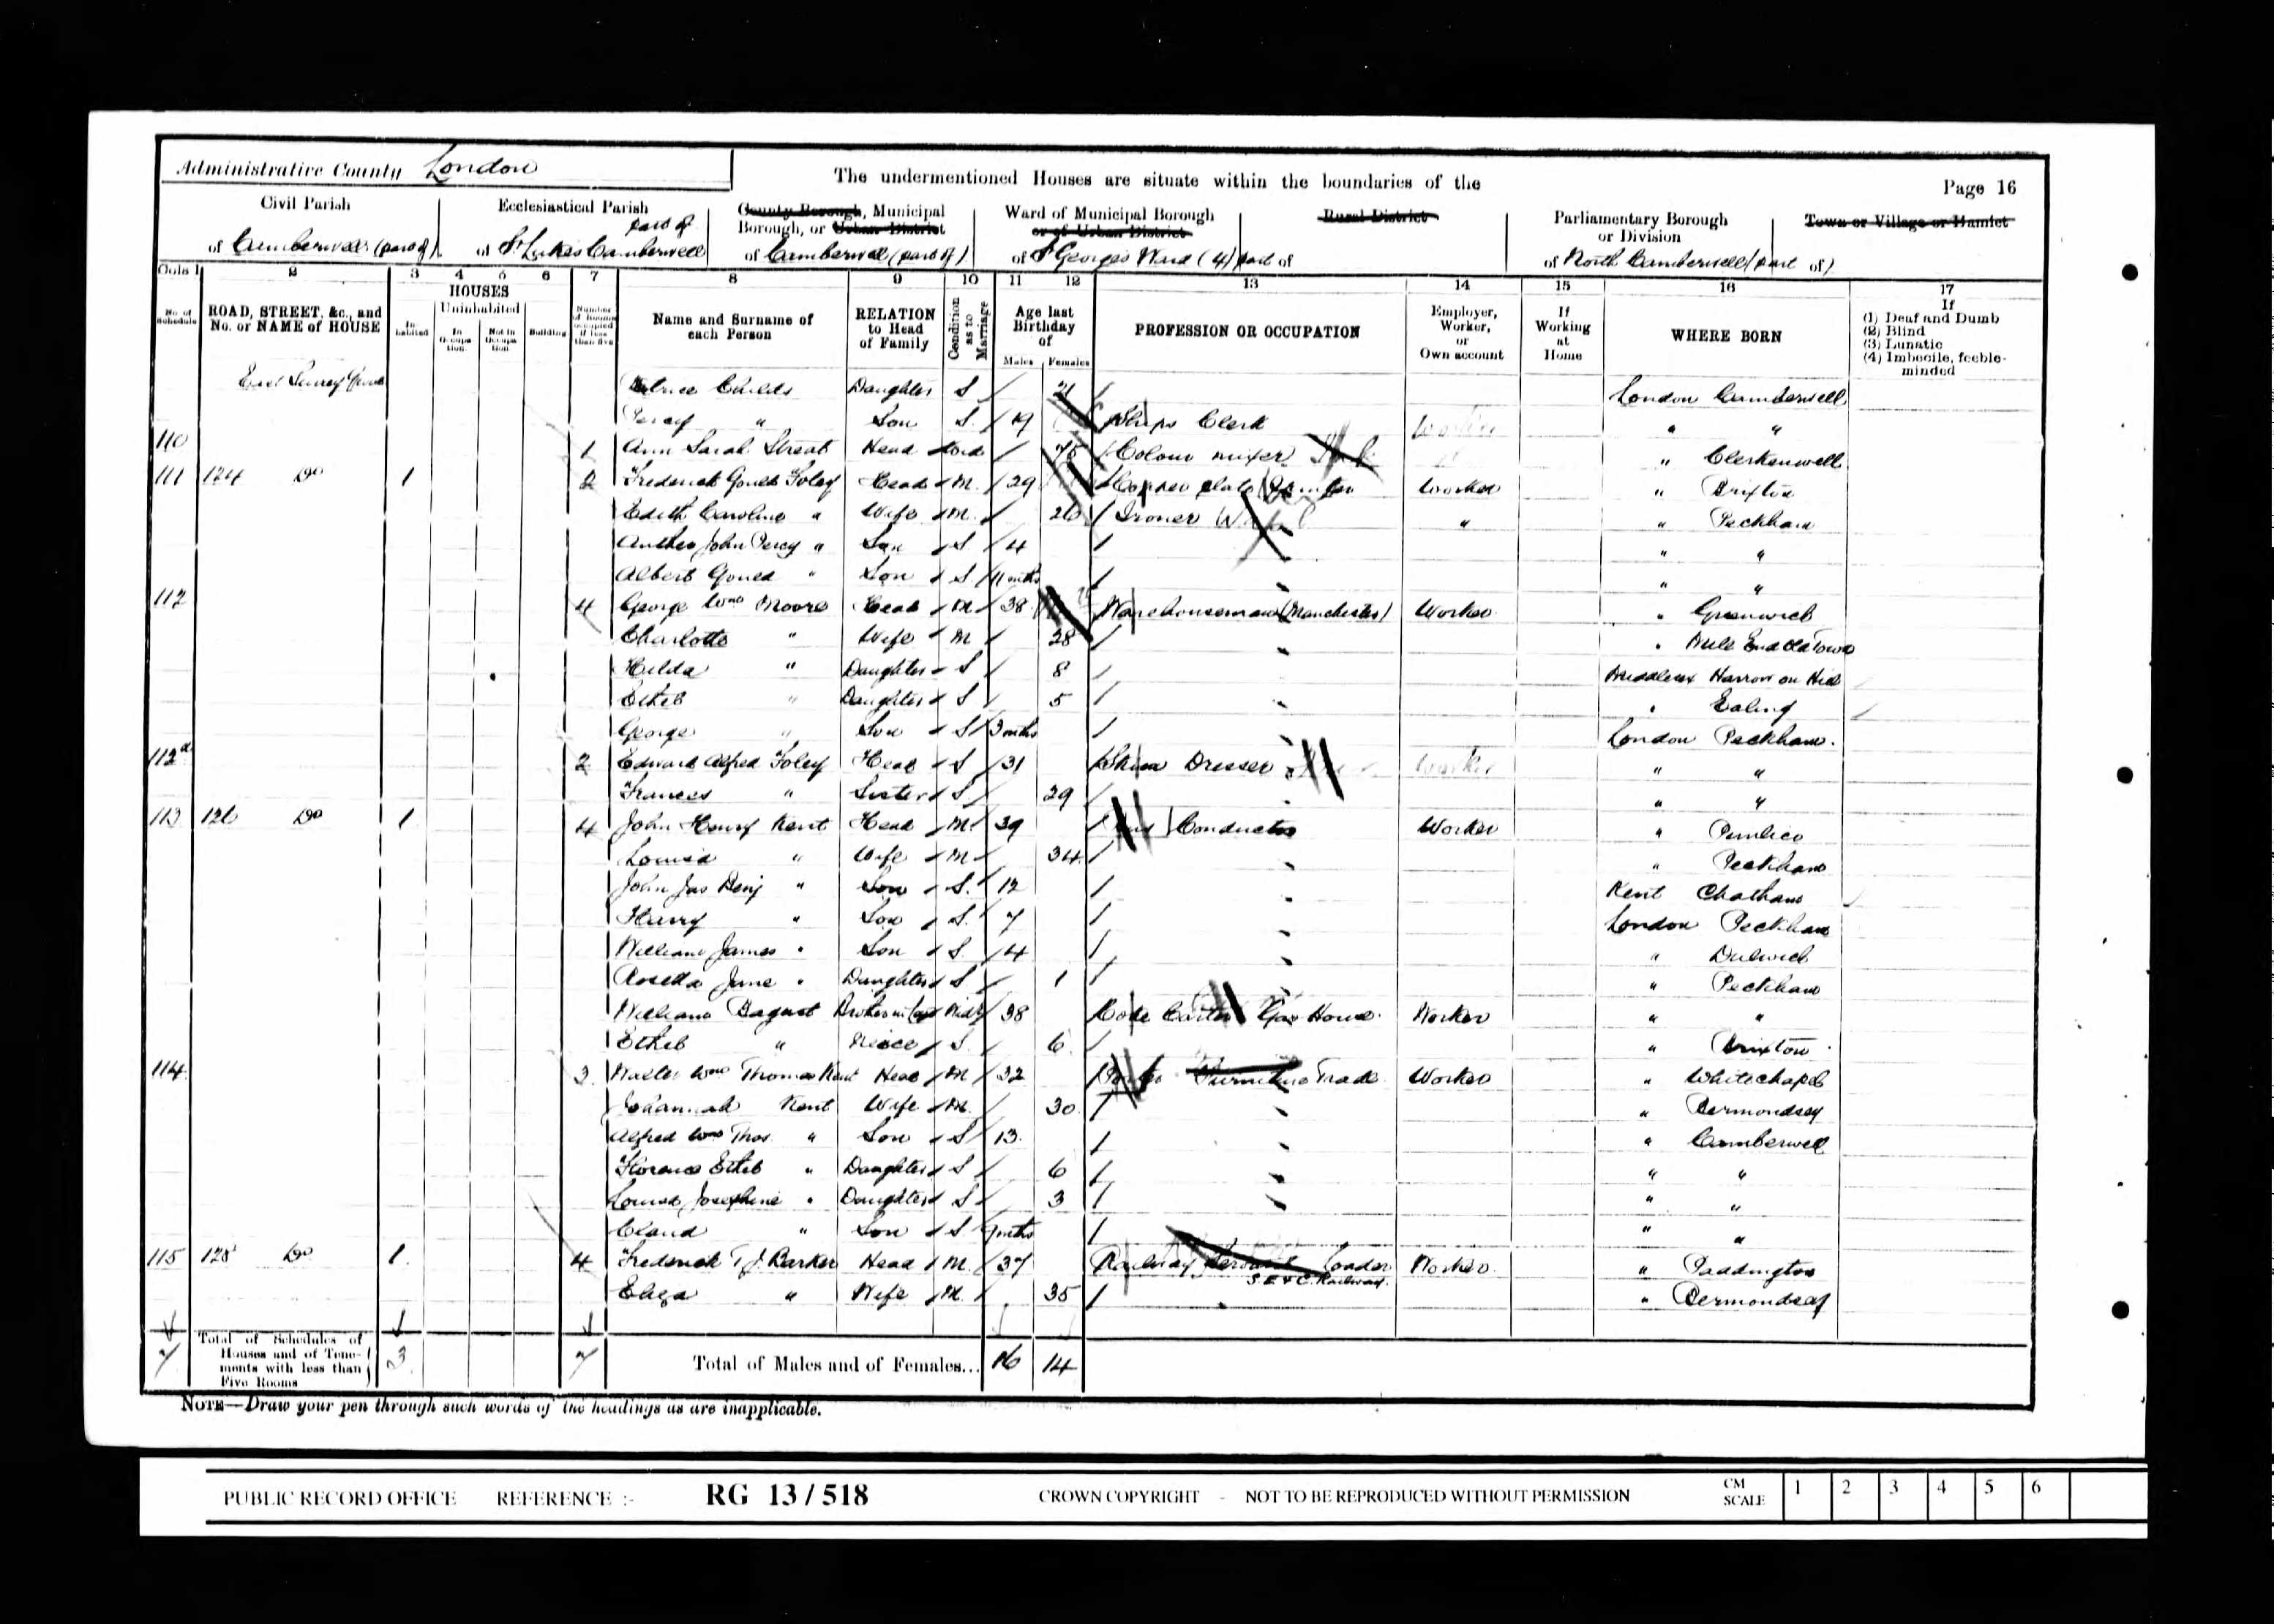 Administrative County London
The undermentioned Houses are situate within the boundaries of the
Page 16
Civil Parish
of Camberwell (part of)
Ecclesiastical Parish
part of
of St Lukes Camberwell
County Borough, Municipal
Borough, or Urban District
of Camberwell (part of)
Ward of Municipal Borough
or of Urban District
of St Georges Ward (4) part of
Rural District
Parliamentary Borough
or Division
of North Camberwell (part of)
Town or Village or Hamlet
Cols 1 2 3 4 5 6 7 8 9 10 11 12 13 14 15 16 17
No. of Schedule
ROAD, STREET, &c., and No. or NAME of HOUSE
HOUSES
Inhabited
Uninhabited
In Occupation.
Not in Occupation
Building
Number of Rooms occupied if less than five
Name and Surname of each Person
RELATION to Head of Family
Condition as to Marriage
Age last Birthday of
Males Females
PROFESSION OR OCCUPATION
Employer, Worker, or Own account
If Working at Home
WHERE BORN
If
(1) Deaf and Dumb
(2) Blind
(3) Lunatic
(4) Imbecile, feeble-minded
East Surrey Grove Childs Daughter S 21 London Camberwell
Percy " Son S 19 Ships Clerk Worker " "
110 1 Ann Sarah Street Head Wid 75 Colour mixer " Clerkenwell
111 124 Do 1 2 Frederick Gould Foley Head M 29 Copper plate Worker " Brixton
Edith Caroline " Wife M 26 Ironer " " Peckham
John Percy " Son S 4 " "
Albert Gould " Son S 11 mths " "
112 4 George Wm Moore Head M 38 Warehouseman (Manchester) Worker " Greenwich
Charlotte " Wife M 28 " Mile End Old Town
Hilda " Daughter S 8 Middlesex Harrow on Hill
Ethel " Daughter S 5 " Ealing
George " Son S 3 mths London Peckham
112a 2 Edward Alfred Foley Head S 31 Dresser Worker " "
Frances " Sister S 29 " "
113 126 Do 1 4 John Henry Kent Head M 39 Conductor Worker " Pimlico
Louisa " Wife M 34 " Peckham
John Jas Benj " Son S 12 Kent Chatham
Harry " Son S 7 London Peckham
William James " Son S 4 " Dulwich
Rosetta Jane " Daughter S 1 " Peckham
William Bagust Brother in law Widr 38 Coke Carter Gas House Worker " "
Ethel " Niece S 6 " Brixton
114 3 Walter Wm Thomas Kent Head M 32 Porter Furniture Trade Worker " Whitechapel
Johannah Kent Wife M 30 " Bermondsey
Alfred Wm Thos " Son S 13 " Camberwell
Florence Ethel " Daughter S 6 " "
Louisa Josephine " Daughter S 3 " "
Claud " Son S mths " "
115 128 Do 1 4 Frederick T J Barker Head M 37 Railway Servant Loader Worker " Paddington
S. E & C. Railway
Eliza " Wife M 35 " Bermondsey
7 Total of Schedules of Houses and of Tenements with less than Five Rooms 3 7 Total of Males and of Females... 16 14
NOTE—Draw your pen through such words of the headings as are inapplicable.
PUBLIC RECORD OFFICE REFERENCE :- RG 13/518 CROWN COPYRIGHT - NOT TO BE REPRODUCED WITHOUT PERMISSION CM SCALE 1 2 3 4 5 6